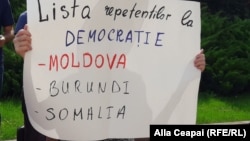 Lista repetenților la
DEMOCRAȚIE
- MOLDOVA
- BURUNDI
- SOMALIA
Alla Ceapai (RFE/RL)